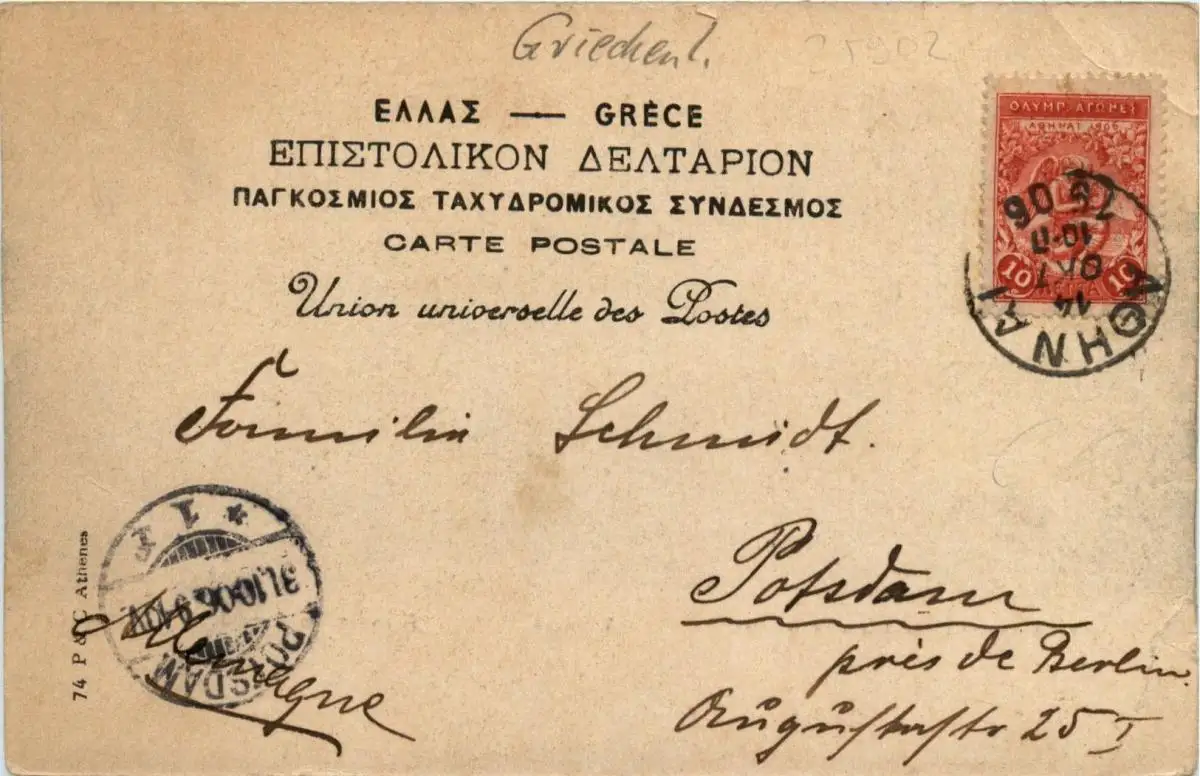 Griechenl.
25902
ΕΛΛΑΣ — GRÈCE
ΕΠΙΣΤΟΛΙΚΟΝ ΔΕΛΤΑΡΙΟΝ
ΠΑΓΚΟΣΜΙΟΣ ΤΑΧΥΔΡΟΜΙΚΟΣ ΣΥΝΔΕΣΜΟΣ
CARTE POSTALE
Union universelle des Postes
ΟΛΥΜΠ. ΑΓΩΝΕΣ
ΑΘΗΝΑΙ 1906
10 10
ΑΘΗΝΑΙ
14
ΟΚΤ
10-Π
06
Familie Schmidt.
Potsdam
près de Berlin.
Auguſtaſtr 25 I
Allemagne
POTSDAM
31.10.06
* 1
74 P & C Athenes